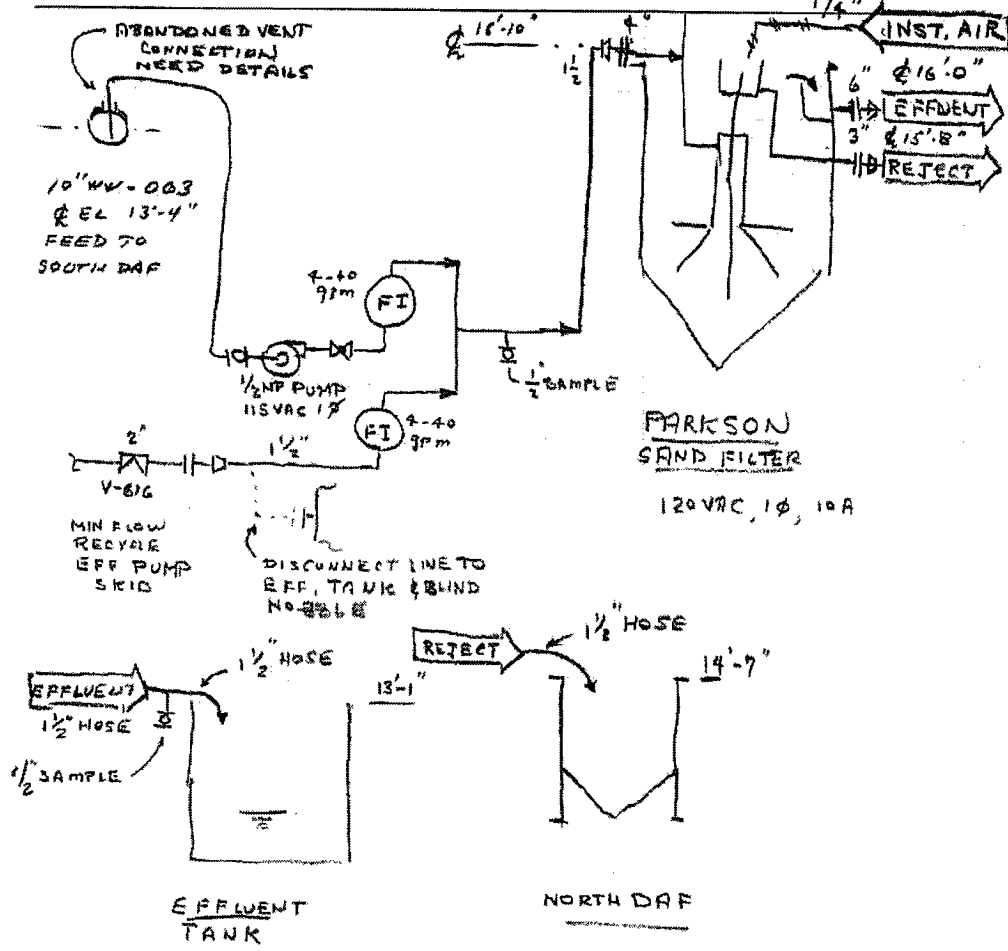 ABANDONED VENT
CONNECTION
NEED DETAILS
10" WW-003
℄ EL 13'-4"
FEED TO
SOUTH DAF
℄ 16'-10"
4"
1 1/2"
1/4"
INST. AIR
6"
℄ 16'-0"
EFFLUENT
3"
℄ 15'-8"
REJECT
4-40
gpm
FI
1/2 HP PUMP
115VAC 1Ø
1/2" SAMPLE
FI
4-40
gpm
2"
V-616
1 1/2"
MIN FLOW
RECYCLE
EFF PUMP
SKID
DISCONNECT LINE TO
EFF. TANK & BLIND
NOZZLE
PARKSON
SAND FILTER
120 VAC, 1Ø, 10A
EFFLUENT
1 1/2" HOSE
1 1/2" HOSE
1/2" SAMPLE
13'-1"
EFFLUENT
TANK
REJECT
1 1/2" HOSE
14'-7"
NORTH DAF